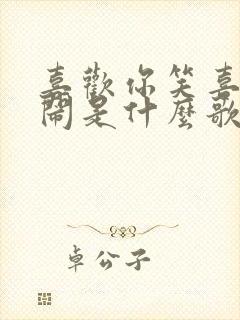 喜歡你笑喜
鬧是什麼歌
卓公子